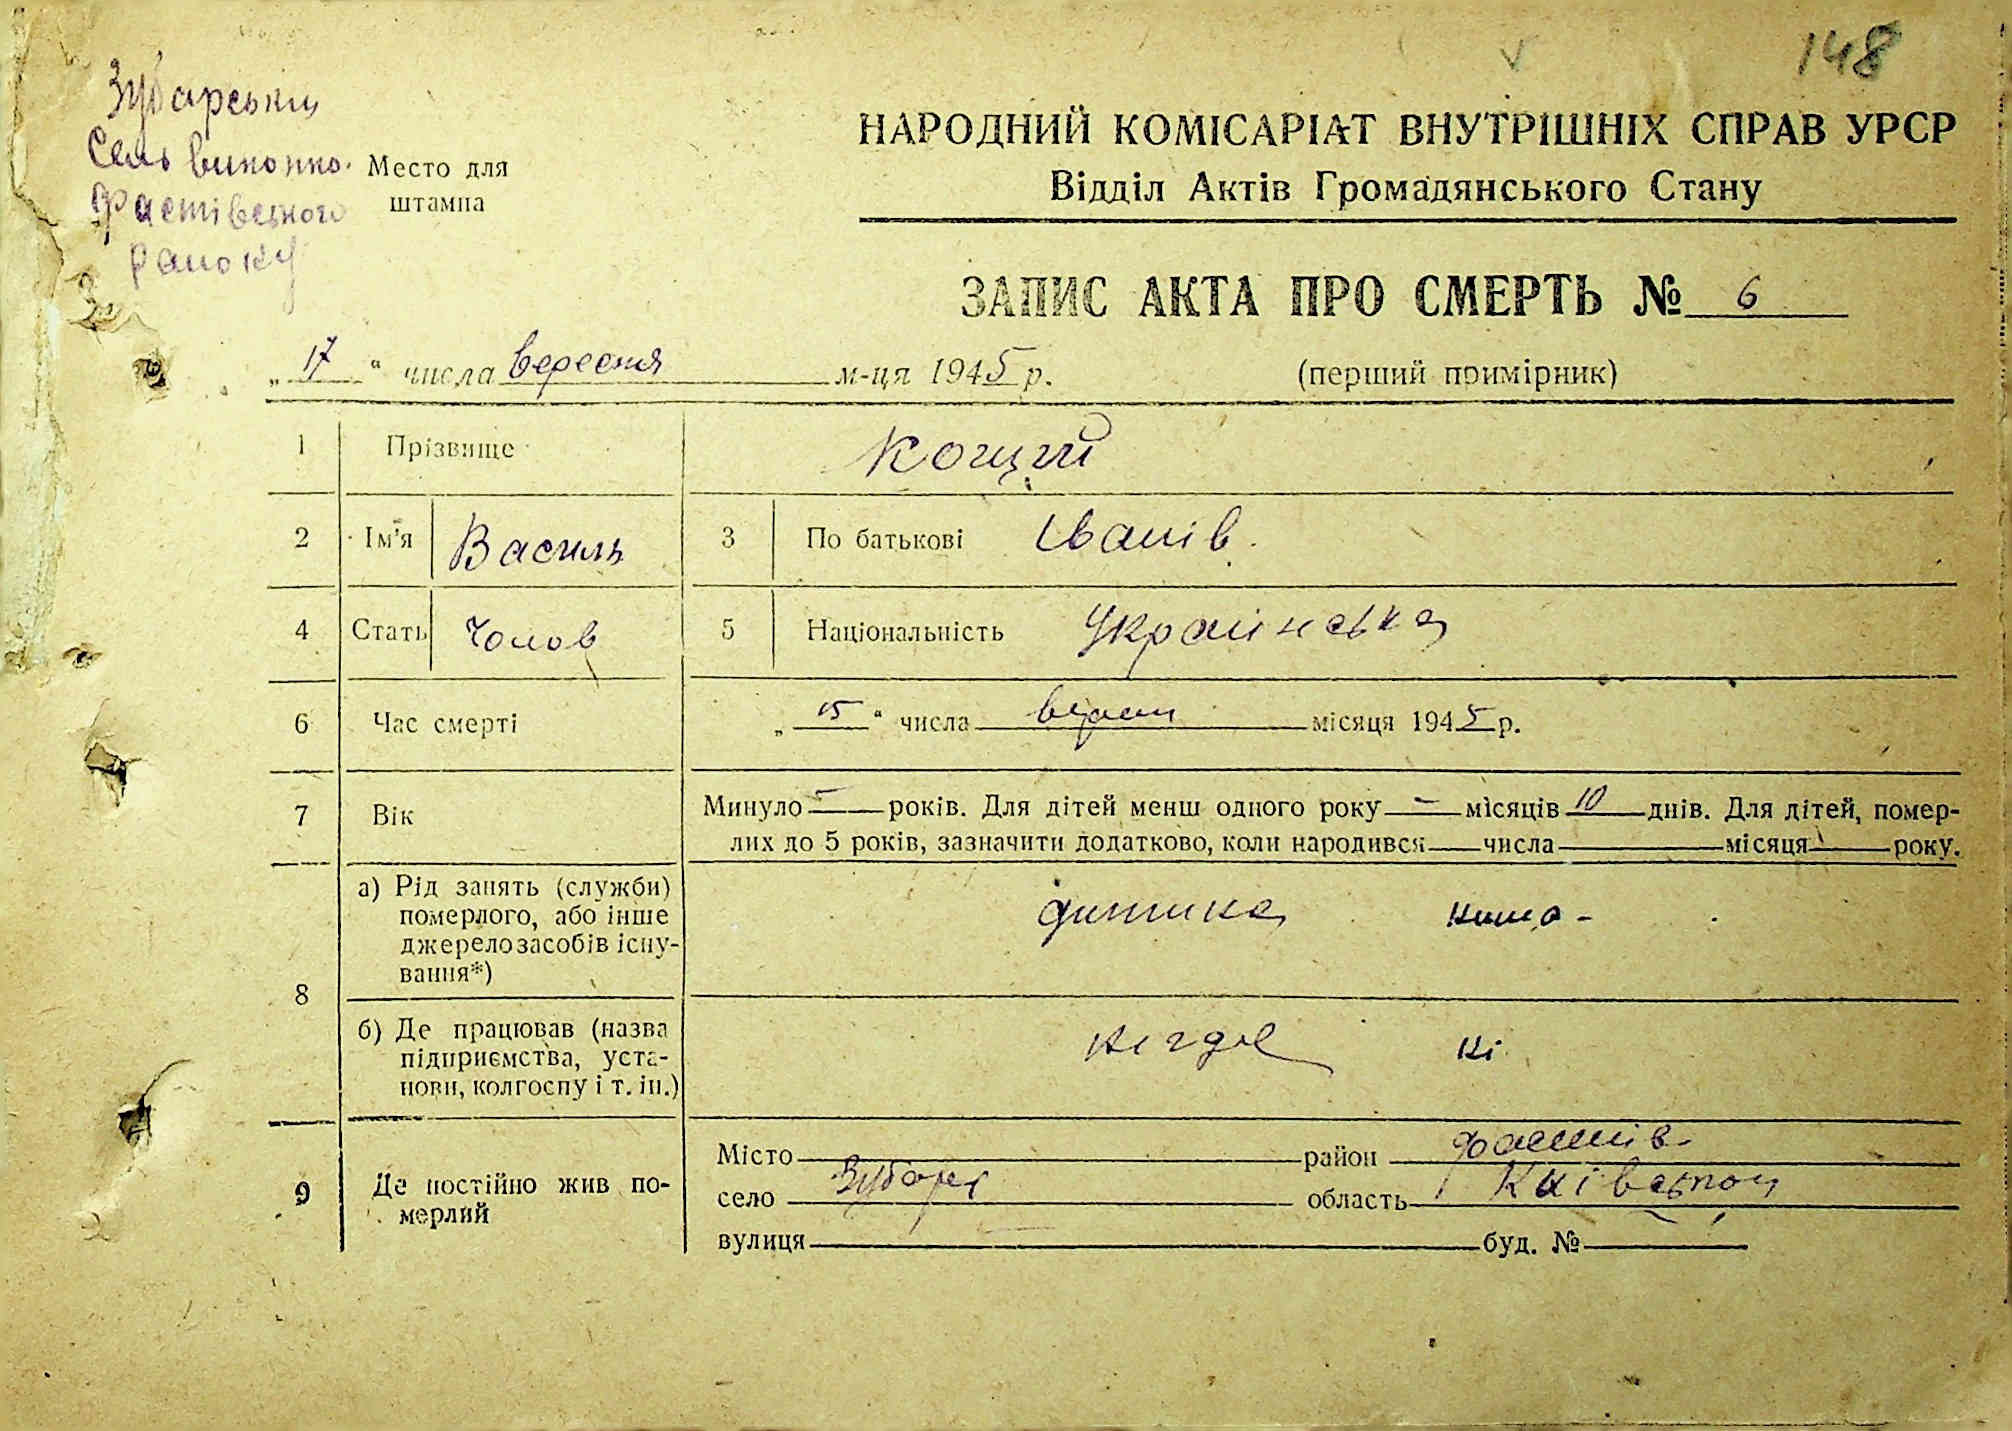 148
Зубарський
Сель виконко.
Фастівського
району
Место для
штампа
НАРОДНИЙ КОМІСАРІАТ ВНУТРІШНІХ СПРАВ УРСР
Відділ Актів Громадянського Стану
ЗАПИС АКТА ПРО СМЕРТЬ № 6
„17“ числа вересня м-ця 1945 р. (перший примірник)
1 Прізвище Коцгй
2 Ім'я Василь 3 По батькові Іванів.
4 Стать Чолов 5 Національність Українська
6 Час смерті „15“ числа вересн місяця 1945 р.
7 Вік Минуло – років. Для дітей менш одного року – місяців 10 днів. Для дітей, помер-
лих до 5 років, зазначити додатково, коли народився числа місяця року.
8 а) Рід занять (служби)
померлого, або інше
джерело засобів існу-
вання*)
дитина
б) Де працював (назва
підприємства, уста-
нови, колгоспу і т. ін.)
нігде
9 Де постійно жив по-
мерлий
Місто район Фастів-
село Зубарі область Київської
вулиця буд. №